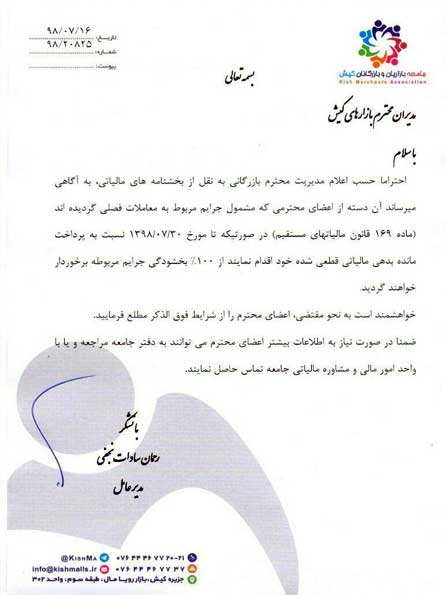 تاریخ: ۹۸/۰۷/۱۶
شماره: ۹۸/۲۰۸۲۵
پیوست:
جامعه بازاریان و بازرگانان کیش
Kish Merchants Association
بسمه تعالی
مدیران محترم بازارهای کیش
با سلام
احتراما حسب اعلام مدیریت محترم بازرگانی به نقل از بخشنامه های مالیاتی، به آگاهی
میرساند آن دسته از اعضای محترمی که مشمول جرایم مربوط به معاملات فصلی گردیده اند
(ماده ۱۶۹ قانون مالیاتهای مستقیم) در صورتیکه تا مورخ ۱۳۹۸/۰۷/۳۰ نسبت به پرداخت
مانده بدهی مالیاتی قطعی شده خود اقدام نمایند از ۱۰۰٪ بخشودگی جرایم مربوطه برخوردار
خواهند گردید.
خواهشمند است به نحو مقتضی، اعضای محترم را از شرایط فوق الذکر مطلع فرمایید.
ضمنا در صورت نیاز به اطلاعات بیشتر اعضای محترم می توانند به دفتر جامعه مراجعه و یا با
واحد امور مالی و مشاوره مالیاتی جامعه تماس حاصل نمایند.
با تشکر
رحمان سادات نجفی
مدیرعامل
@KishMa ۰۷۶ ۴۴ ۴۶ ۷۷ ۲۰-۲۱
info@kishmalls.ir ۰۷۶ ۴۴ ۴۶ ۷۷ ۳۷
جزیره کیش، بازار رویا مال، طبقه سوم، واحد ۳۰۲